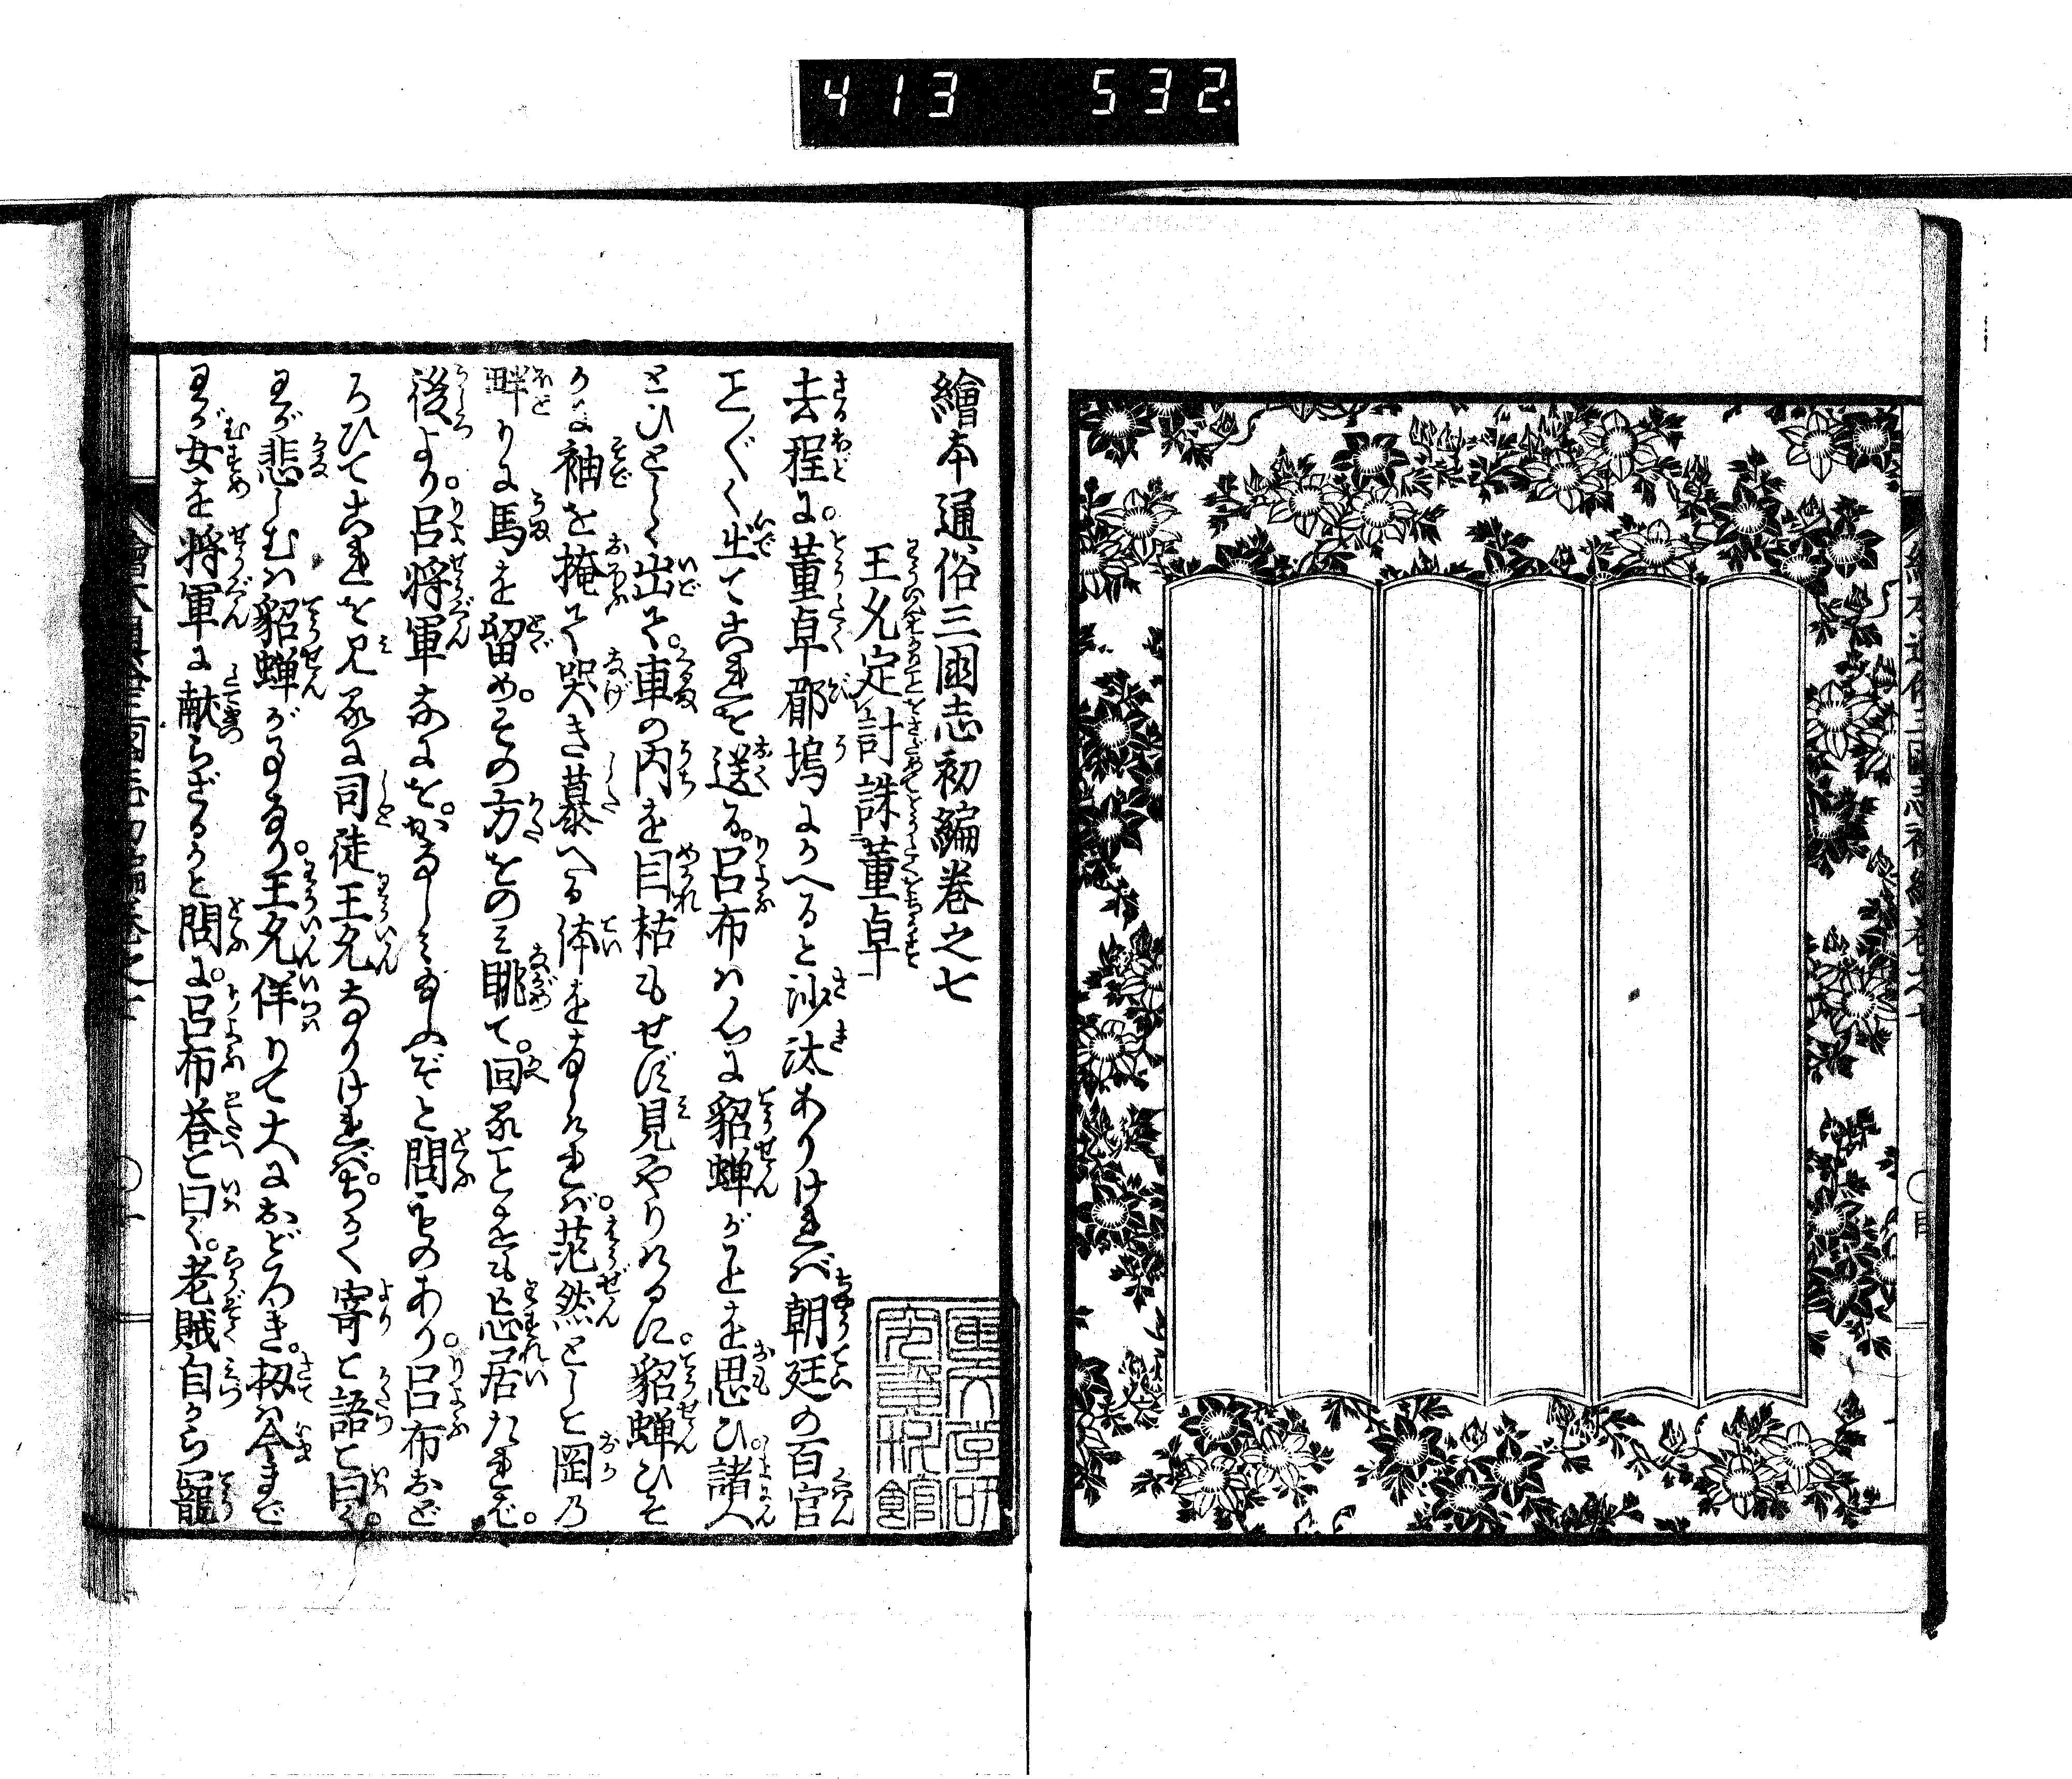 413 532
繪本通俗三國志初編巻之七
王允定計誅董卓
去程に。董卓郿塢にかへると沙汰ありければ朝廷の百官
こと〴〵く出てこれを送る。呂布は心に貂蝉がことを思ひ。諸人
とひとしく出て。車の内を目枯もせず見やりけるに。貂蝉ひそ
かに袖を掩て哭き慕へる体をなしければ。茫然として岡の
畔りに馬を留め。その方をのみ眺て。回ることをも忘居たれば。
後より。呂将軍なにをかなしみ玉ふぞと問ものあり。呂布おど
ろひてこれを見るに司徒王允なりければ。ちかく寄て語て曰く。
わが悲しむは貂蝉が事なり。王允佯りて大におどろき。扨は今まで
わが女を将軍に献らざるかと問に。呂布荅て曰く。老賊自から寵